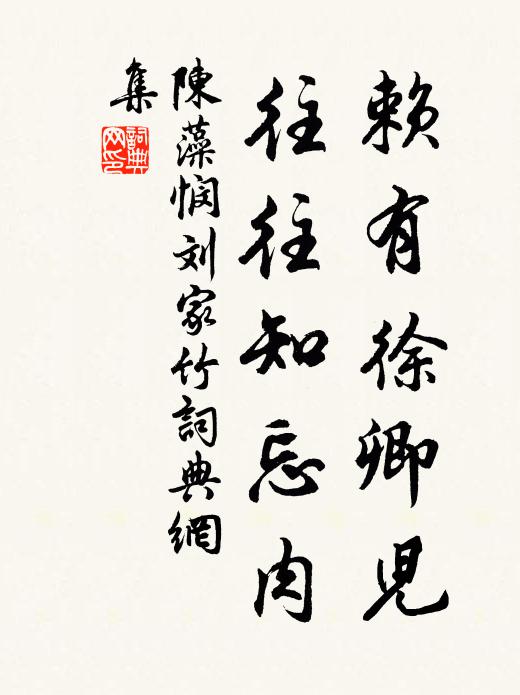 賴有徐卿兒
往往知忘肉
陳藻悯刘家竹詞典網
集
詞典
网印